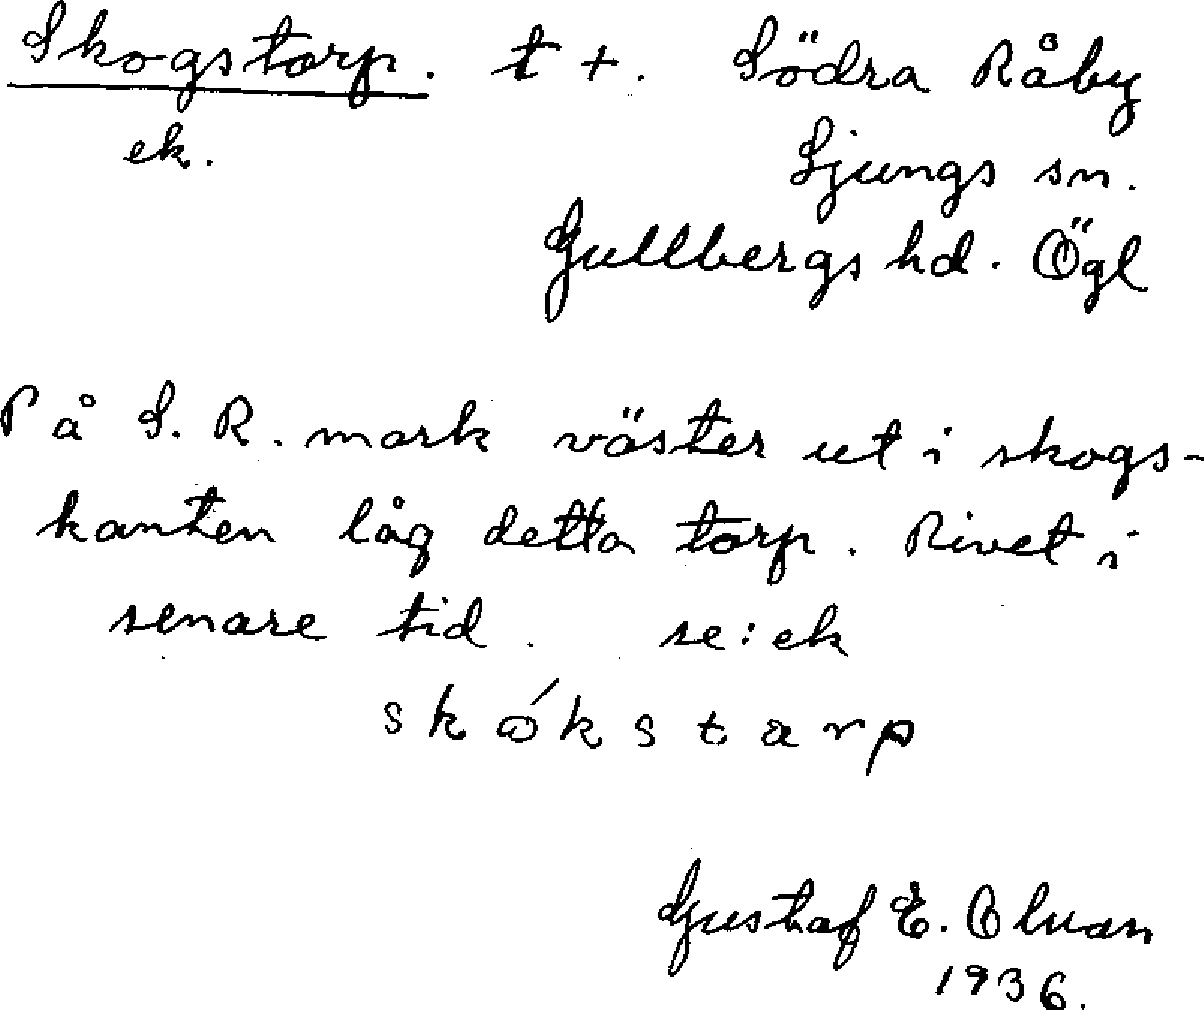 Skogstorp. t +. Södra Råby
ek. Ljungs sn.
Gullbergs hd. Ögl
På S. R. mark väster ut i skogs-
kanten låg detta torp. Rivet i
senare tid. se: ek
skókstarp
Gustaf E.
1936.